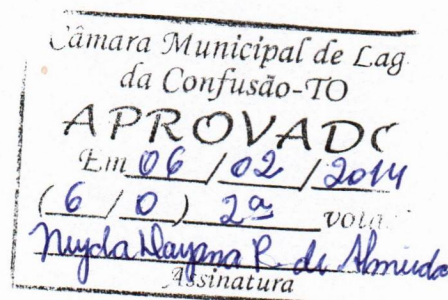 Câmara Municipal de Lag
da Confusão-TO
APROVADO
Em 06 / 02 / 2014
( 6 / 0 ) 2ª vota
Dayana R. de Almeida
Assinatura